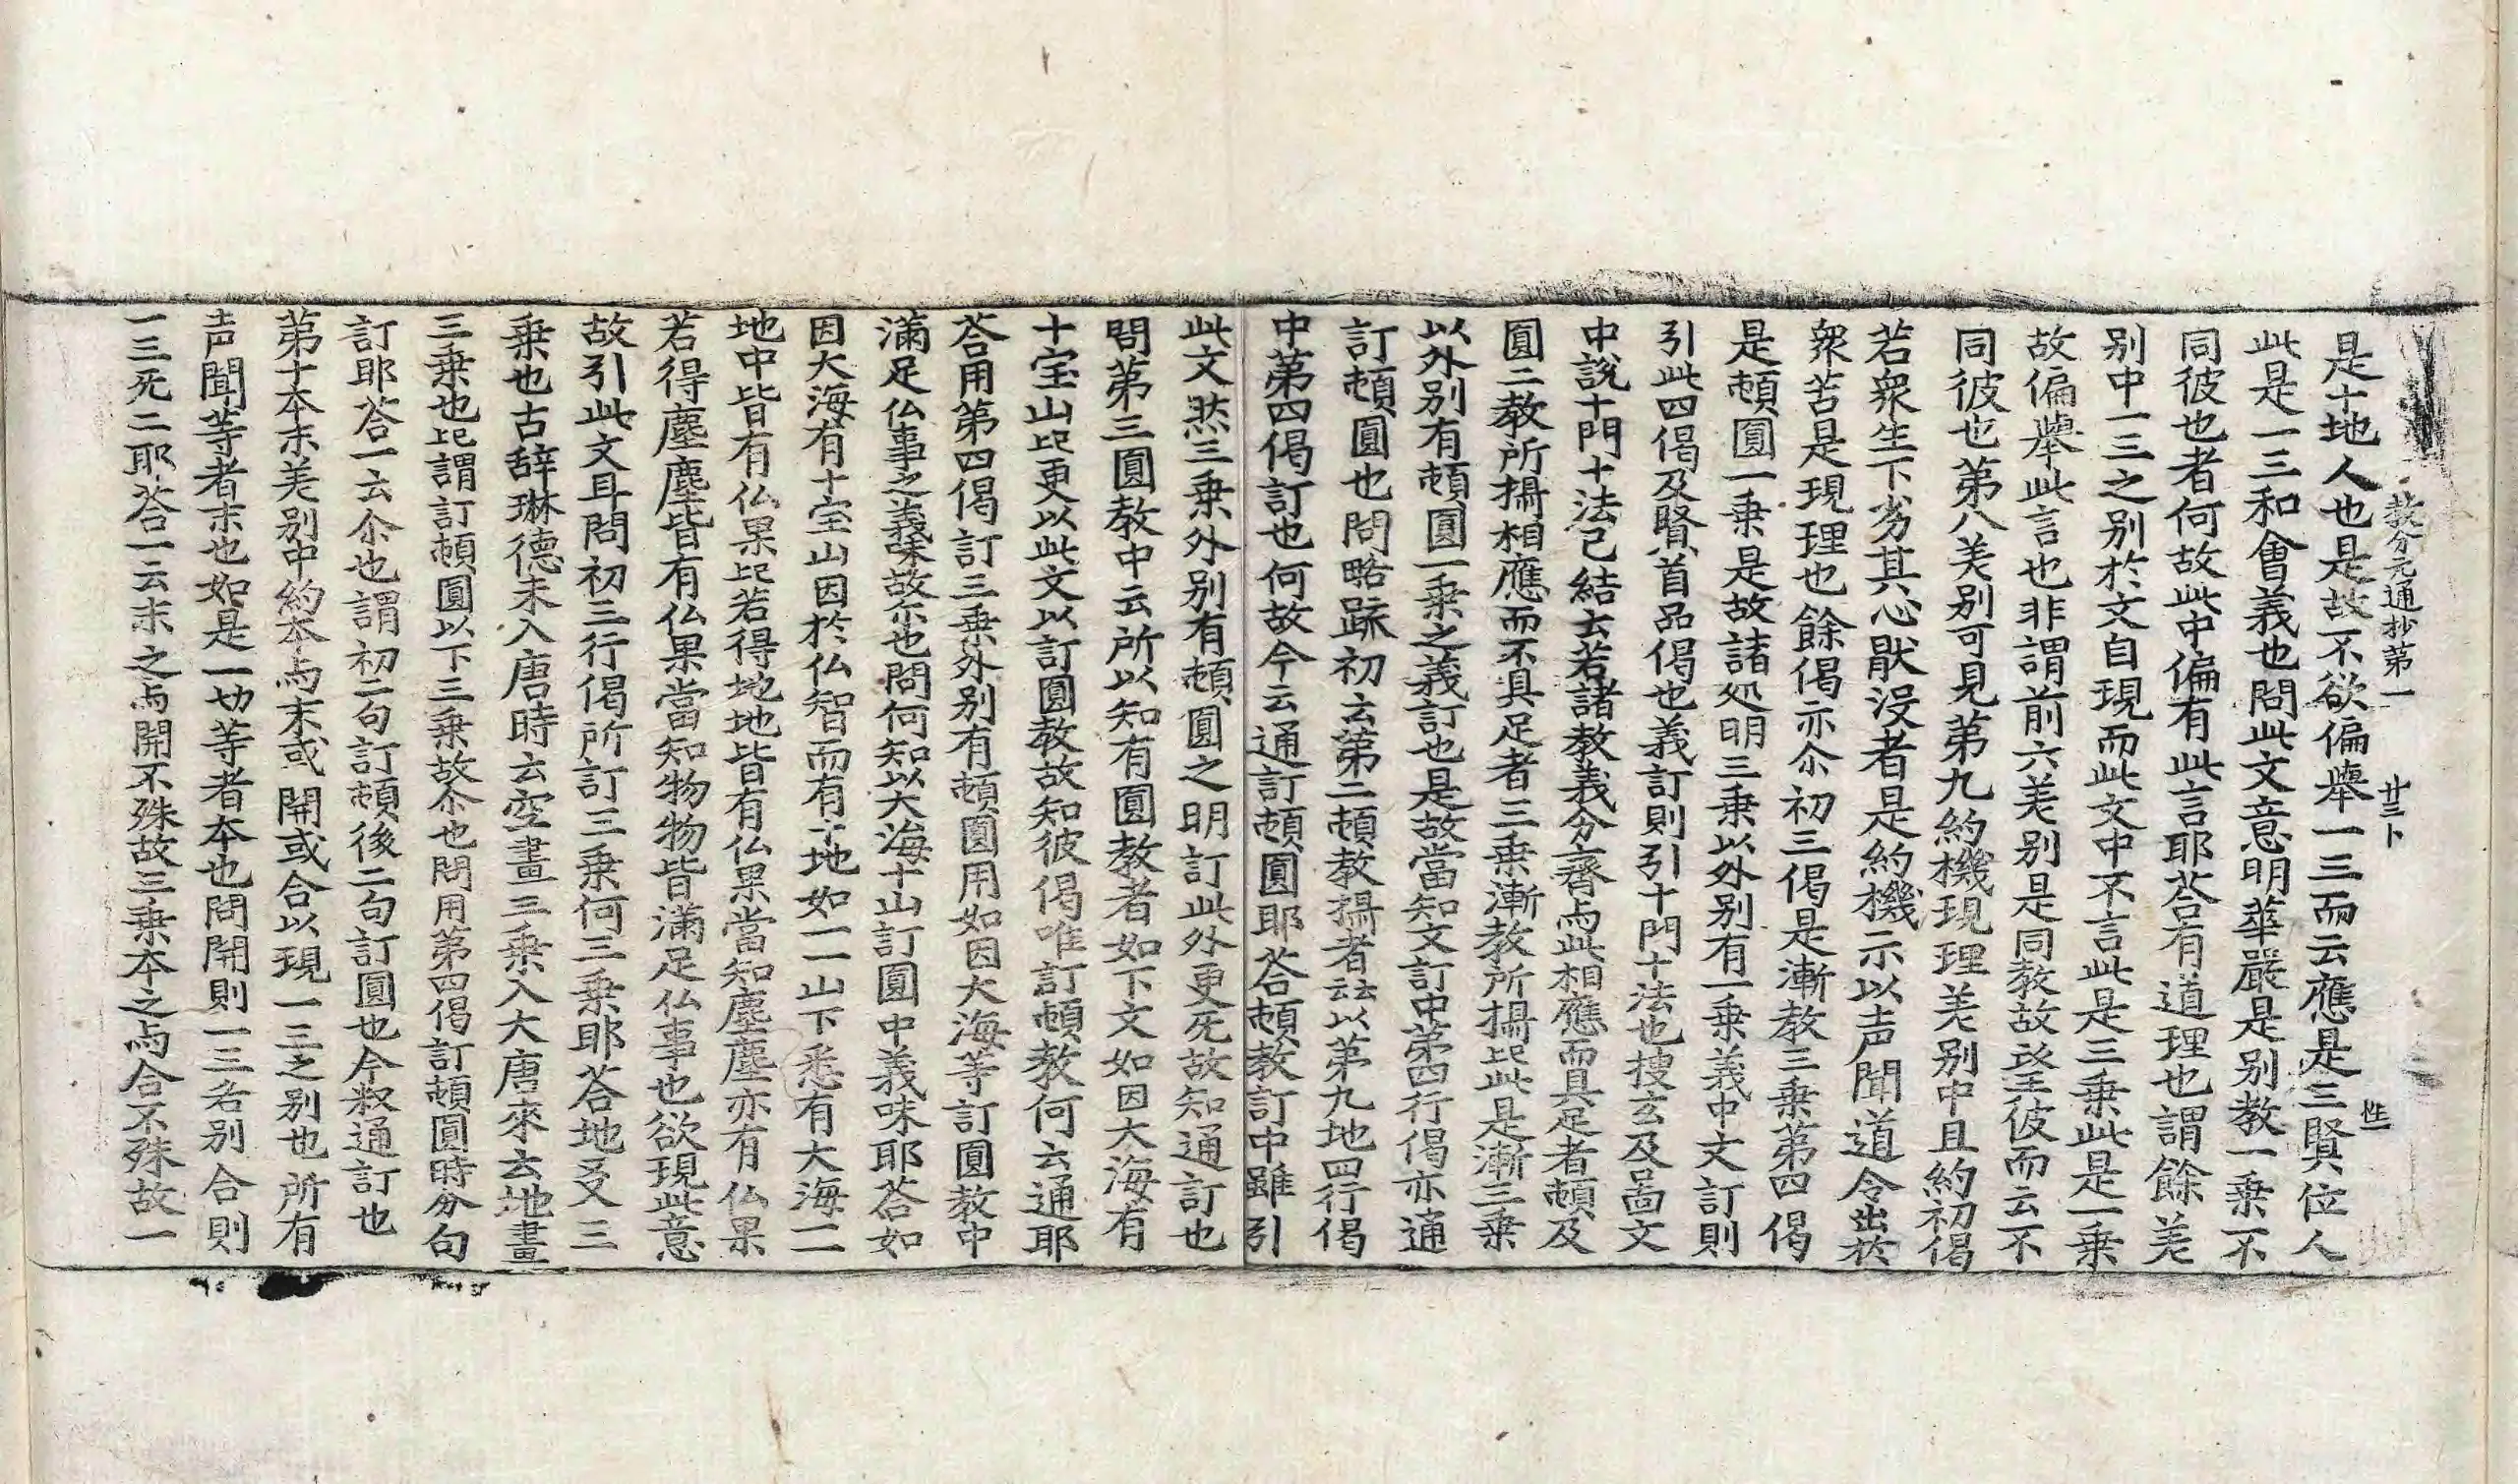 教分元通抄第一 廿三卜 性二
是十地人也是故不欲偏擧一三而云應是三賢位人
此是一三和會義也問此文意明華嚴是別教一乗不
同彼也者何故此中偏有此言耶荅有道理也謂餘差
别中一三之别於文自現而此文中不言此是三乗此是一乗
故偏擧此言也非謂前六差别是同教故望彼而云不
同彼也第八差别可見第九約機現理差别中且約初偈
若衆生下劣其心猒没者是約機示以声聞道令出於
衆苦是現理也餘偈亦尒初三偈是漸教三乗第四偈
是頓圓一乗是故諸処明三乗以外别有一乗義中文訂則
引此四偈及賢首品偈也義訂則引十門十法也搜玄及啚文
中說十門十法已結云若諸教義分齊与此相應而具足者頓及
圓二教所攝相應而不具足者三乗漸教所攝此是漸三乗
以外别有頓圓一乗之義訂也是故當知文訂中第四行偈亦通
訂頓圓也問略䟽初云第二頓教攝者云云以第九地四行偈
中第四偈訂也何故今云通訂頓圓耶荅頓教訂中雖引
此文然三乗外别有頓圓之明訂此外更死故知通訂也
問第三圓教中云所以知有圓教者如下文如因大海有
十宝山比更以此文以訂圓教故知彼偈唯訂頓教何云通耶
荅用第四偈訂三乗外别有頓圓用如因大海等訂圓教中
滿足仏事之義味故尒也問何知以大海十山訂圓中義味耶荅如
因大海有十宝山因於仏智而有十地如一一山下悉有大海一一
地中皆有仏果比若得地地皆有仏果當知塵塵亦有仏果
若得塵塵皆有仏果當知物物皆滿足仏事也欲現此意
故引此文耳問初三行偈所訂三乗何三乗耶荅地爻三
乗也古辞琳德未入唐時云空畫三乗入大唐來云地畫
三乗也比謂訂頓圓以下三乗故尒也問用第四偈訂頓圓時分句
訂耶荅一云尒也謂初二句訂頓後二句訂圓也今釈通訂也
第十本末差别中約本与末或開或合以現一三之别也所有
声聞等者末也如是一切等者本也問開則一三各别合則
一三死二耶荅一云末之与開不殊故三乗本之与合不殊故一